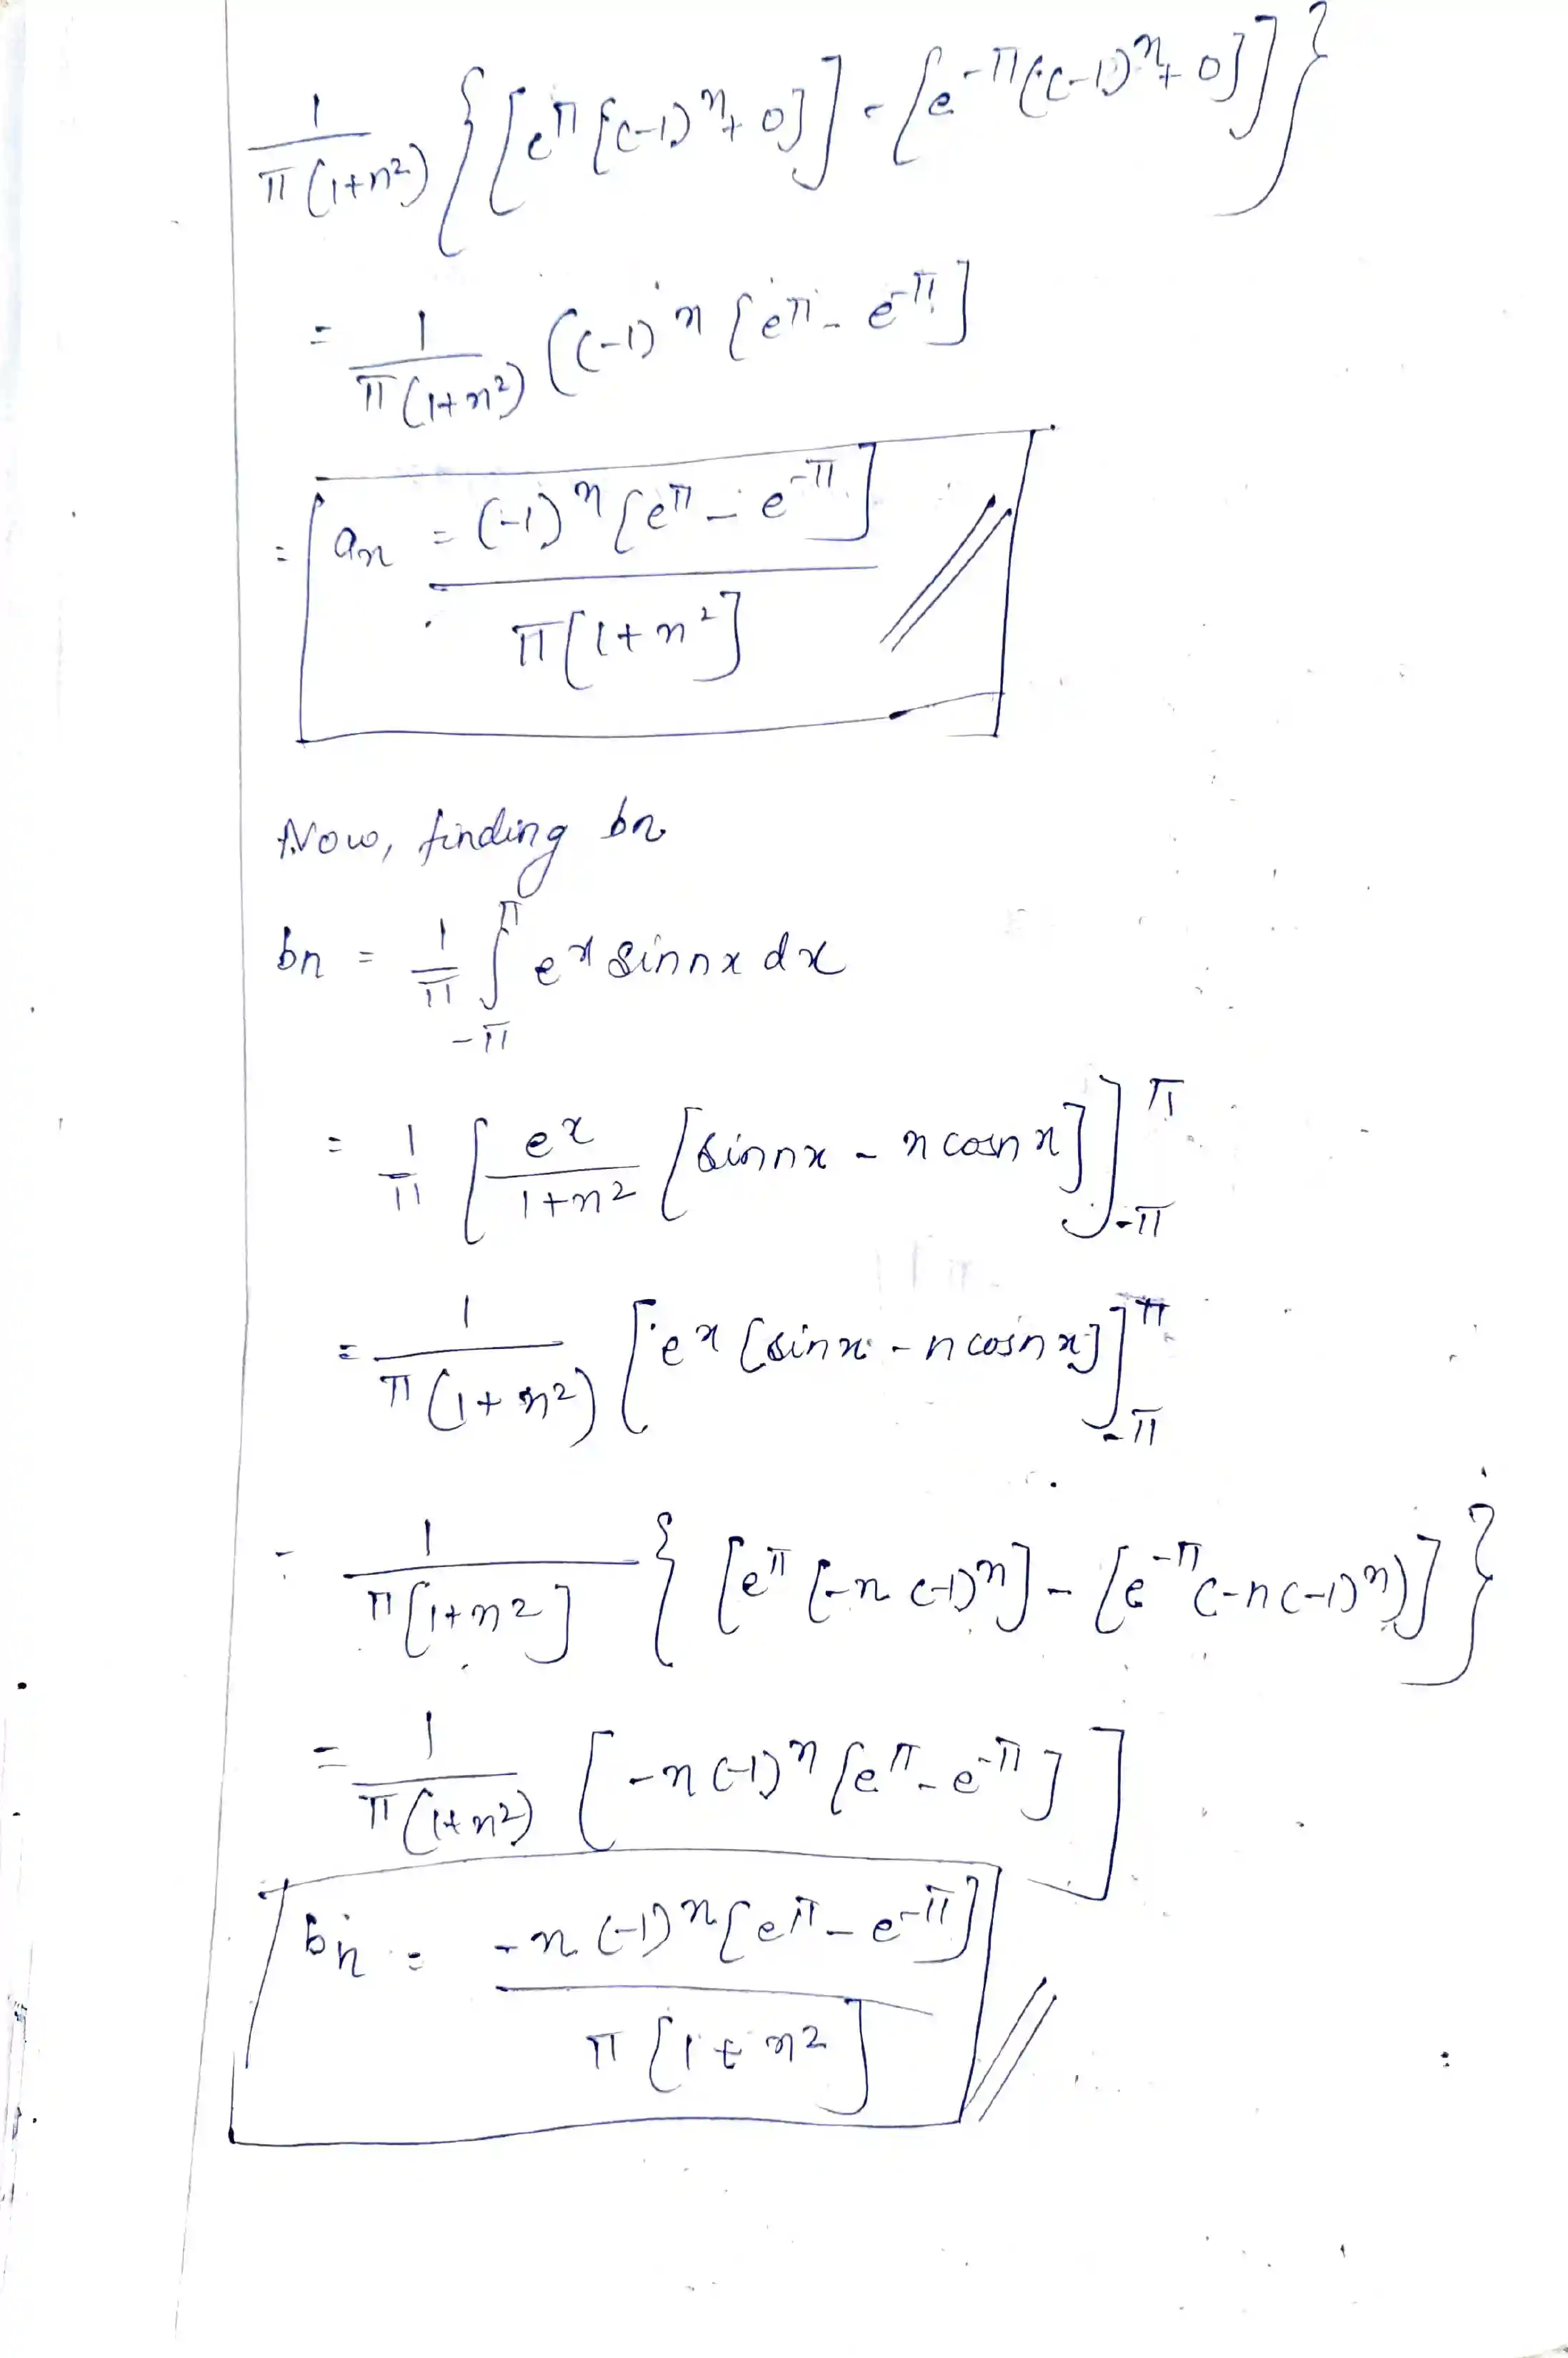 1/π(1+n²) { [e^π [(-1)^n + 0]] - [e^-π [(-1)^n + 0]] }
= 1/π(1+n²) ((-1)^n [e^π - e^-π]
= an = (-1)^n [e^π - e^-π] / π[1+n²]
Now, finding bn
bn = 1/π ∫_-π^π e^x sin nx dx
= 1/π [ e^x/1+n² [sin nx - n cos n x] ]_-π^π
= 1/π(1+n²) [ e^x [sin x - n cos n x] ]_-π^π
= 1/π[1+n²] { [e^π [-n (-1)^n] - [e^-π (-n (-1)^n)] }
= 1/π(1+n²) [ -n (-1)^n [e^π - e^-π] ]
bn = -n (-1)^n [e^π - e^-π] / π [1 + n²]